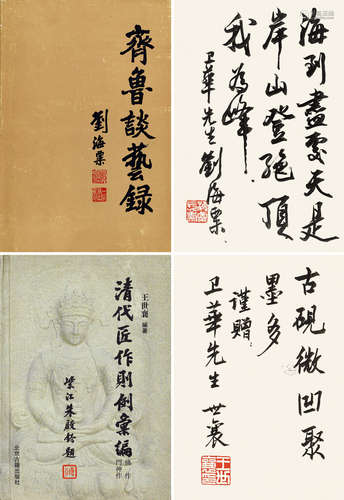 齊魯談藝録
劉海粟
海到盡處天是
岸山登絕頂
我為峰
卫華先生劉海粟
王世襄 編著
清代匠作則例彙編
佛作
門神作
紫江朱啟鈐題
北京古籍出版社
古硯微凹聚
墨多
謹贈
卫華先生 世襄